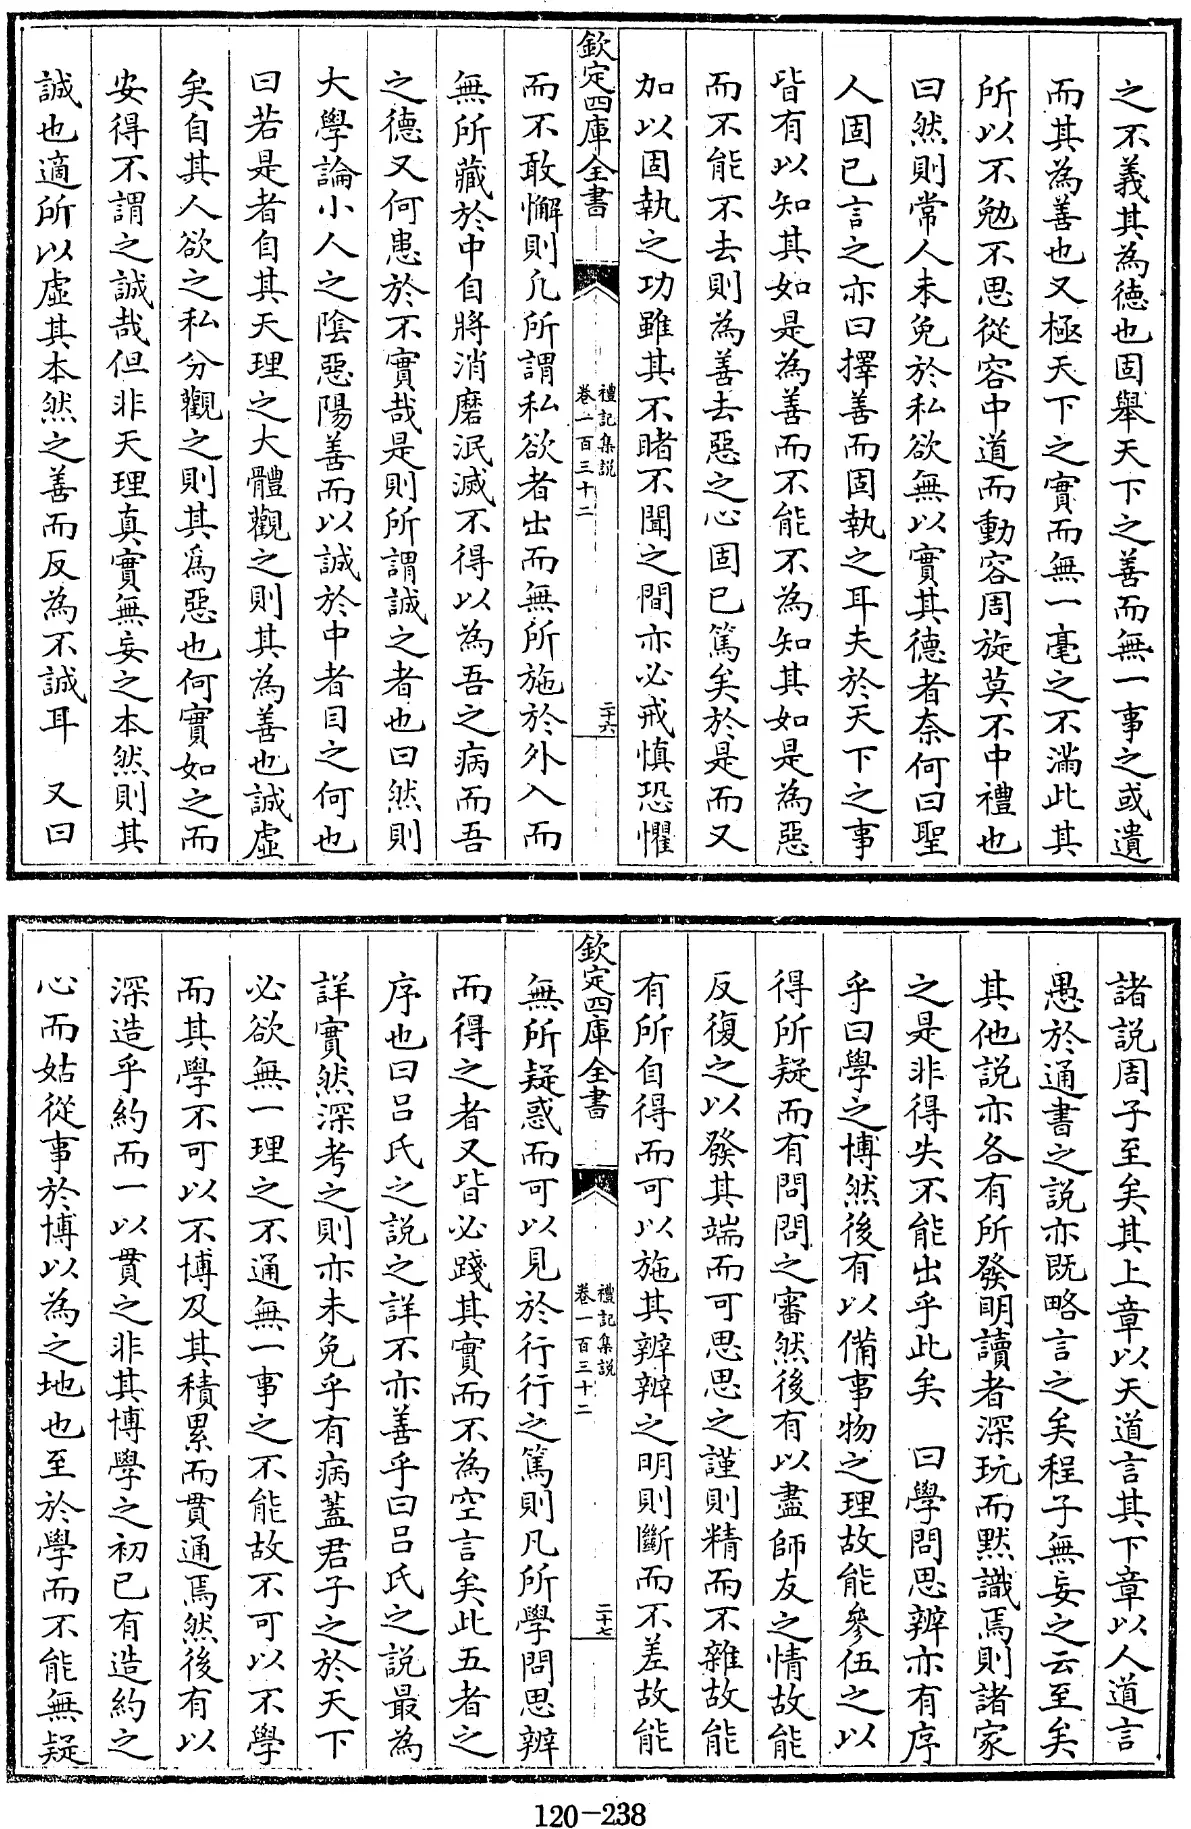 之不義其為德也固舉天下之善而無一事之或遺
而其為善也又極天下之實而無一毫之不滿此其
所以不勉不思從容中道而動容周旋莫不中禮也
曰然則常人未免於私欲無以實其德者奈何曰聖
人固已言之亦曰擇善而固執之耳夫於天下之事
皆有以知其如是為善而不能不為知其如是為惡
而不能不去則為善去惡之心固已篤矣於是而又
加以固執之功雖其不睹不聞之間亦必戒慎恐懼
欽定四庫全書
禮記集說
卷一百三十二
二十六
而不敢懈則凡所謂私欲者出而無所施於外入而
無所藏於中自將消磨泯滅不得以為吾之病而吾
之德又何患於不實哉是則所謂誠之者也曰然則
大學論小人之陰惡陽善而以誠於中者目之何也
曰若是者自其天理之大體觀之則其為善也誠虛
矣自其人欲之私分觀之則其為惡也何實如之而
安得不謂之誠哉但非天理真實無妄之本然則其
誠也適所以虛其本然之善而反為不誠耳　又曰
諸說周子至矣其上章以天道言其下章以人道言
愚於通書之說亦既略言之矣程子無妄之云至矣
其他說亦各有所發明讀者深玩而默識焉則諸家
之是非得失不能出乎此矣　曰學問思辨亦有序
乎曰學之博然後有以備事物之理故能參伍之以
得所疑而有問問之審然後有以盡師友之情故能
反復之以發其端而可思思之謹則精而不雜故能
有所自得而可以施其辨辨之明則斷而不差故能
欽定四庫全書
禮記集說
卷一百三十二
二十七
無所疑惑而可以見於行行之篤則凡所學問思辨
而得之者又皆必踐其實而不為空言矣此五者之
序也曰呂氏之說之詳不亦善乎曰呂氏之說最為
詳實然深考之則亦未免乎有病蓋君子之於天下
必欲無一理之不通無一事之不能故不可以不學
而其學不可以不博及其積累而貫通焉然後有以
深造乎約而一以貫之非其博學之初已有造約之
心而姑從事於博以為之地也至於學而不能無疑
120-238